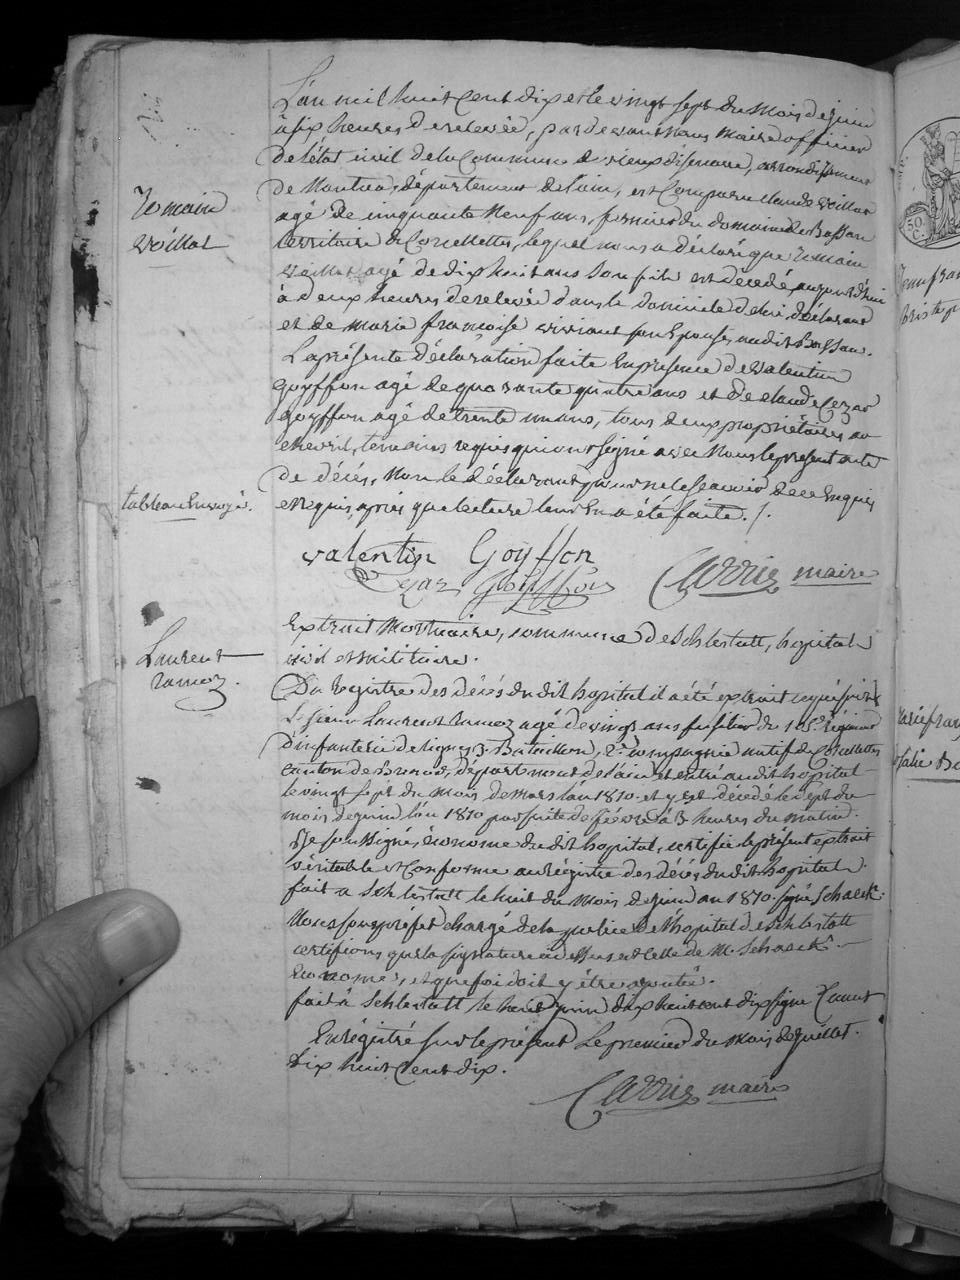 L'an mil huit Cent dix et le vingt sept du mois de juin
à six heures de relevée, par devant nous maire officier
de l'état civil de la Commune de vieux disenave, arrondissement
de Nantua, département de l'ain, est Comparu claude voillat
agé de cinquante Neuf ans, fermier du domaine de Bassan
territoire de Corcellettes, lequel nous a déclaré que Romain
voillat agé de dix huit ans son fils est décédé aujourd'hui
à deux heures de relevée dans le domicile de lui déclarant
et de marie françoise viviant son Epouse, audit Bassan.
La présente déclaration faite En présence de valentin
goyffon agé de quarante quatre ans et de claude Cezar
goyffon agé de trente un ans, tous deux propriétaires au
chevril, temoins requis qui ont signé avec Nous le présent acte
de décès, Non le déclarant pour ne le scavoir de ce Enquis
et Requis, après que lecture leur En a été faite. /.
Romain
voillat
tableau Envoyé.
valentin Goyffon
Cezar Goyffon Carrier maire
Laurent
ramoz.
Extrait Mortuaire, commune de Schlestatt, hopital
civil et militaire.
Du Registre des décès du dit hopital il a été extrait ce qui suit
Le sieur Laurent ramoz agé de vingt ans fusilier du 105e Régiment
d'infanterie de ligne, 3e Bataillon, 2e compagnie natif de Corcellettes
canton de Brenod, département de l'ain, est entré audit hopital
le vingt sept du mois de mars l'an 1810. et y est décédé le sept du
mois de juin l'an 1810 par suite de fièvre à 3 heures du matin.
Je soussigné, économe du dit hopital, certifie le présent extrait
véritable et Conforme au régistre des décès du dit hopital.
fait a Schlestatt le huit du mois de juin an 1810. signé Schaeck.
Nous sous préfet chargé de la police de l'hopital de Schlestatt
certifions que la signature ci dessus est celle de M. Schaeck
Econome, et que foi doit y être ajoutée.
fait à Schlestatt le huit juin dix huit cent dix signé
Enrégistré sur le présent Le premier du mois de Juillet
Dix huit Cent dix.
Carrier maire